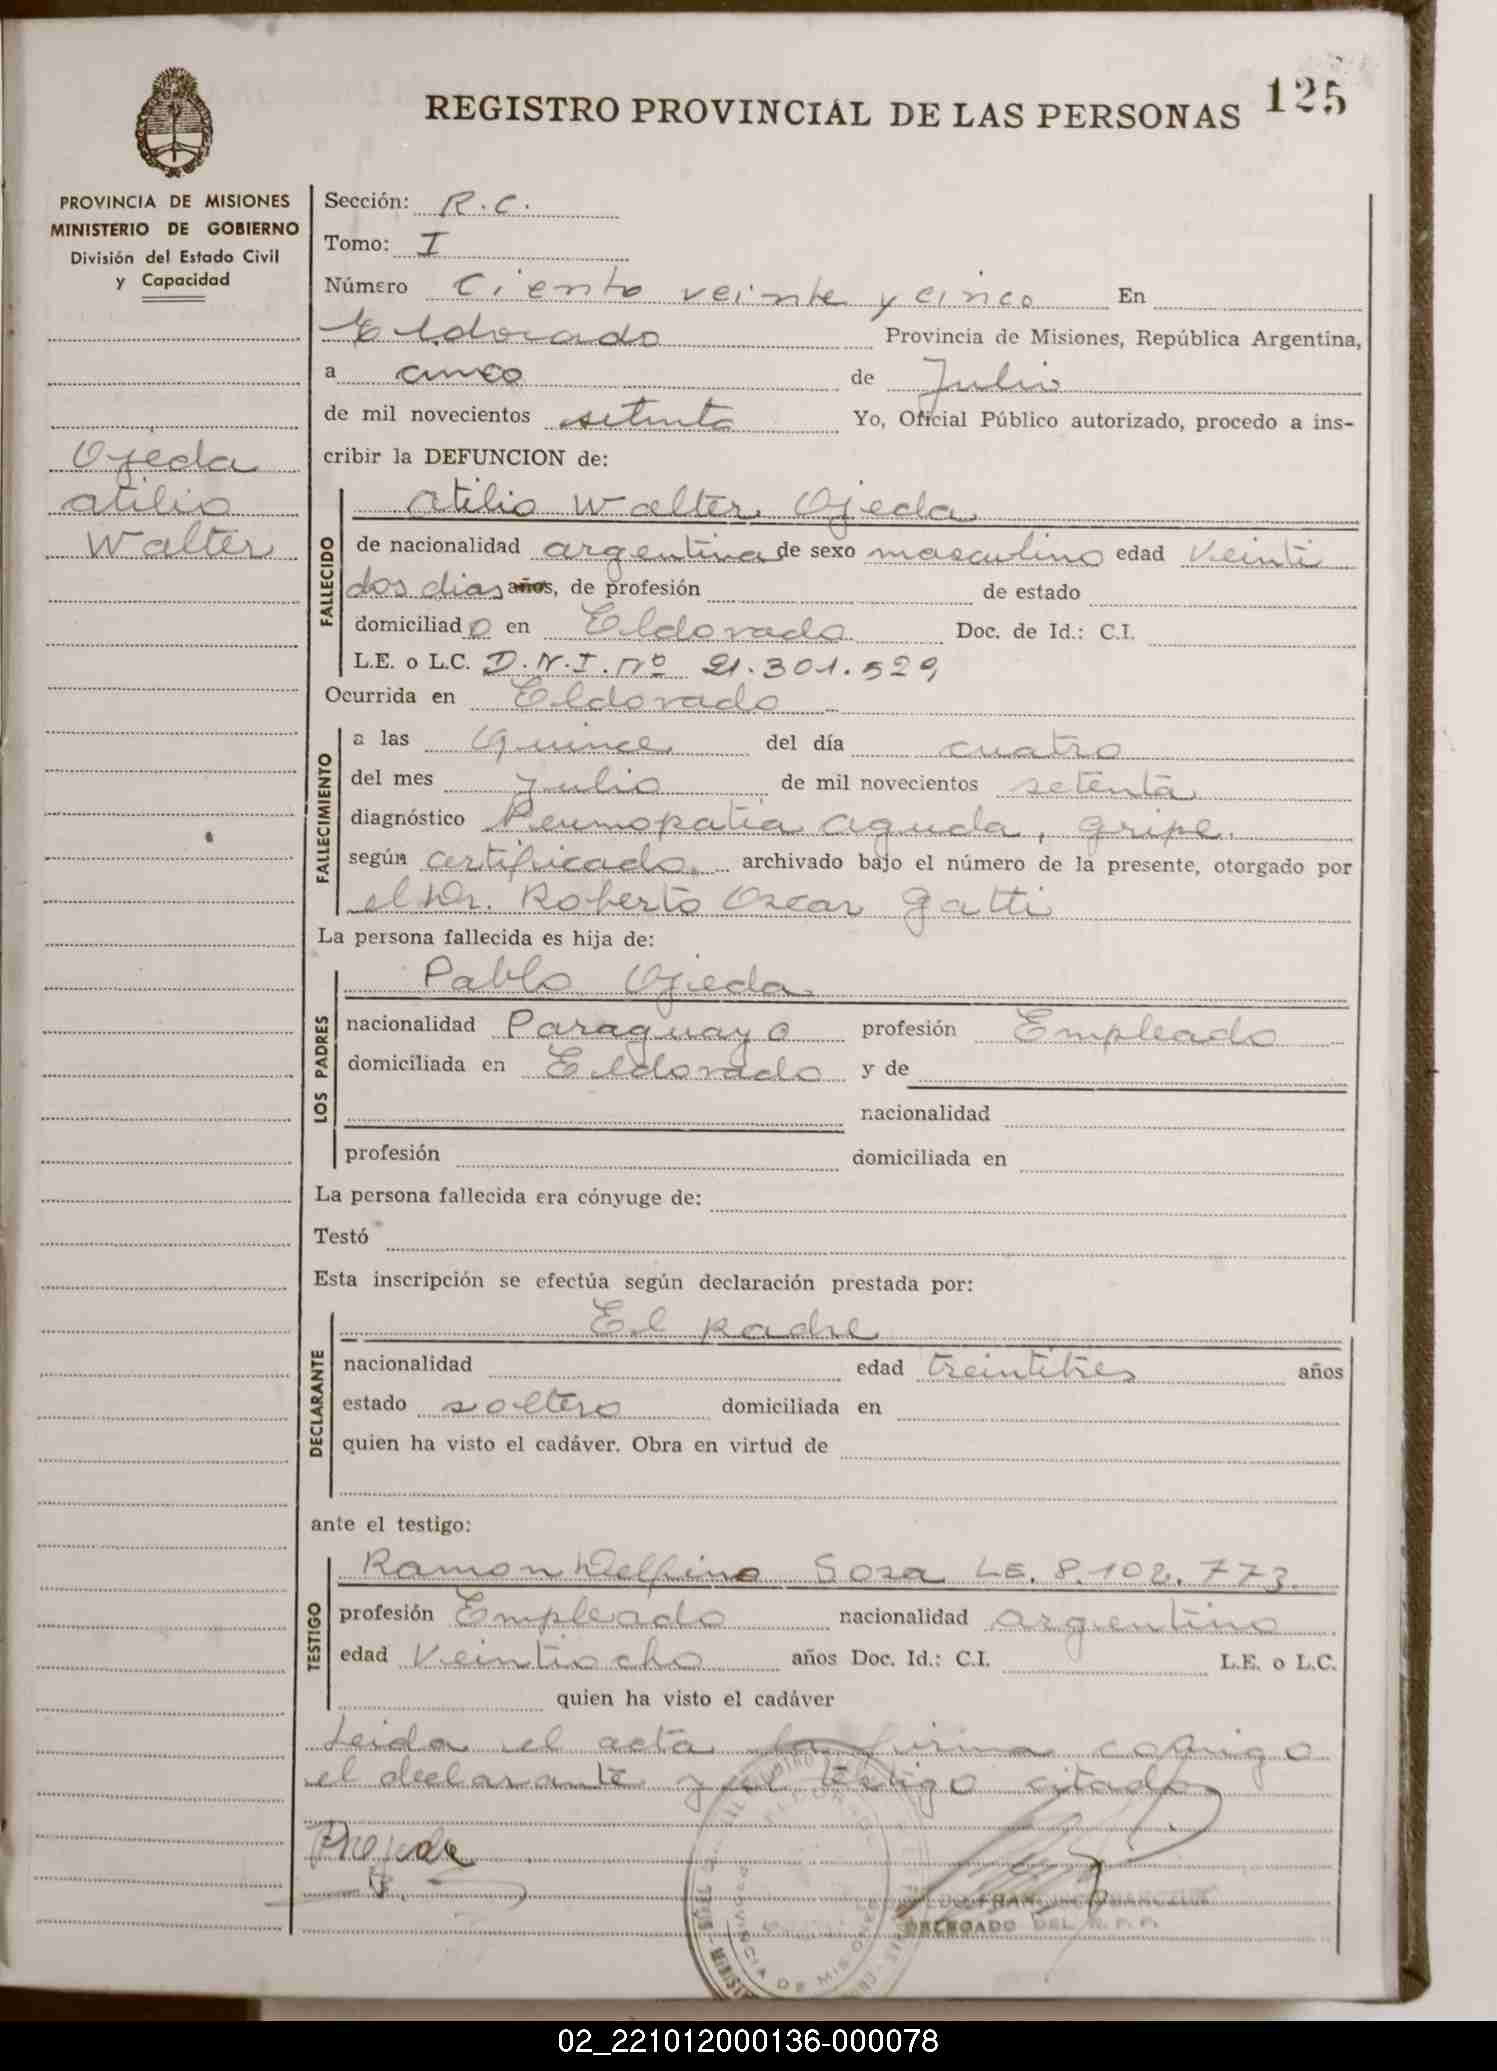 REGISTRO PROVINCIAL DE LAS PERSONAS 125
PROVINCIA DE MISIONES
MINISTERIO DE GOBIERNO
División del Estado Civil
y Capacidad
Ojeda
Atilio
Walter
Sección: R.C.
Tomo: I
Número Ciento veinte y cinco En
Eldorado Provincia de Misiones, República Argentina,
a cinco de Julio
de mil novecientos setenta Yo, Oficial Público autorizado, procedo a ins-
cribir la DEFUNCION de:
FALLECIDO
Atilio Walter Ojeda
de nacionalidad argentina de sexo masculino edad Veinti
dos dias años, de profesión de estado
domiciliado en Eldorado Doc. de Id.: C.I.
L.E. o L.C. D.N.I. Nº 21.301.529
Ocurrida en Eldorado
FALLECIMIENTO
a las Quince del día cuatro
del mes julio de mil novecientos setenta
diagnóstico Neumopatia aguda, gripe.
según certificado archivado bajo el número de la presente, otorgado por
el Dr. Roberto Oscar Gatti
La persona fallecida es hija de:
LOS PADRES
Pablo Ojeda
nacionalidad Paraguayo profesión Empleado
domiciliada en Eldorado y de
nacionalidad
profesión domiciliada en
La persona fallecida era cónyuge de:
Testó
Esta inscripción se efectúa según declaración prestada por:
DECLARANTE
El padre
nacionalidad edad treintitres años
estado soltero domiciliada en
quien ha visto el cadáver. Obra en virtud de
ante el testigo:
TESTIGO
Ramon Delfino Sosa LE. 8.102.773.
profesión Empleado nacionalidad argentino
edad Veintiocho años Doc. Id.: C.I. L.E. o L.C.
quien ha visto el cadáver
Leida el acta la firma conmigo
el declarante y el testigo citado
DELEGADO DEL R.P.P.
02_221012000136-000078